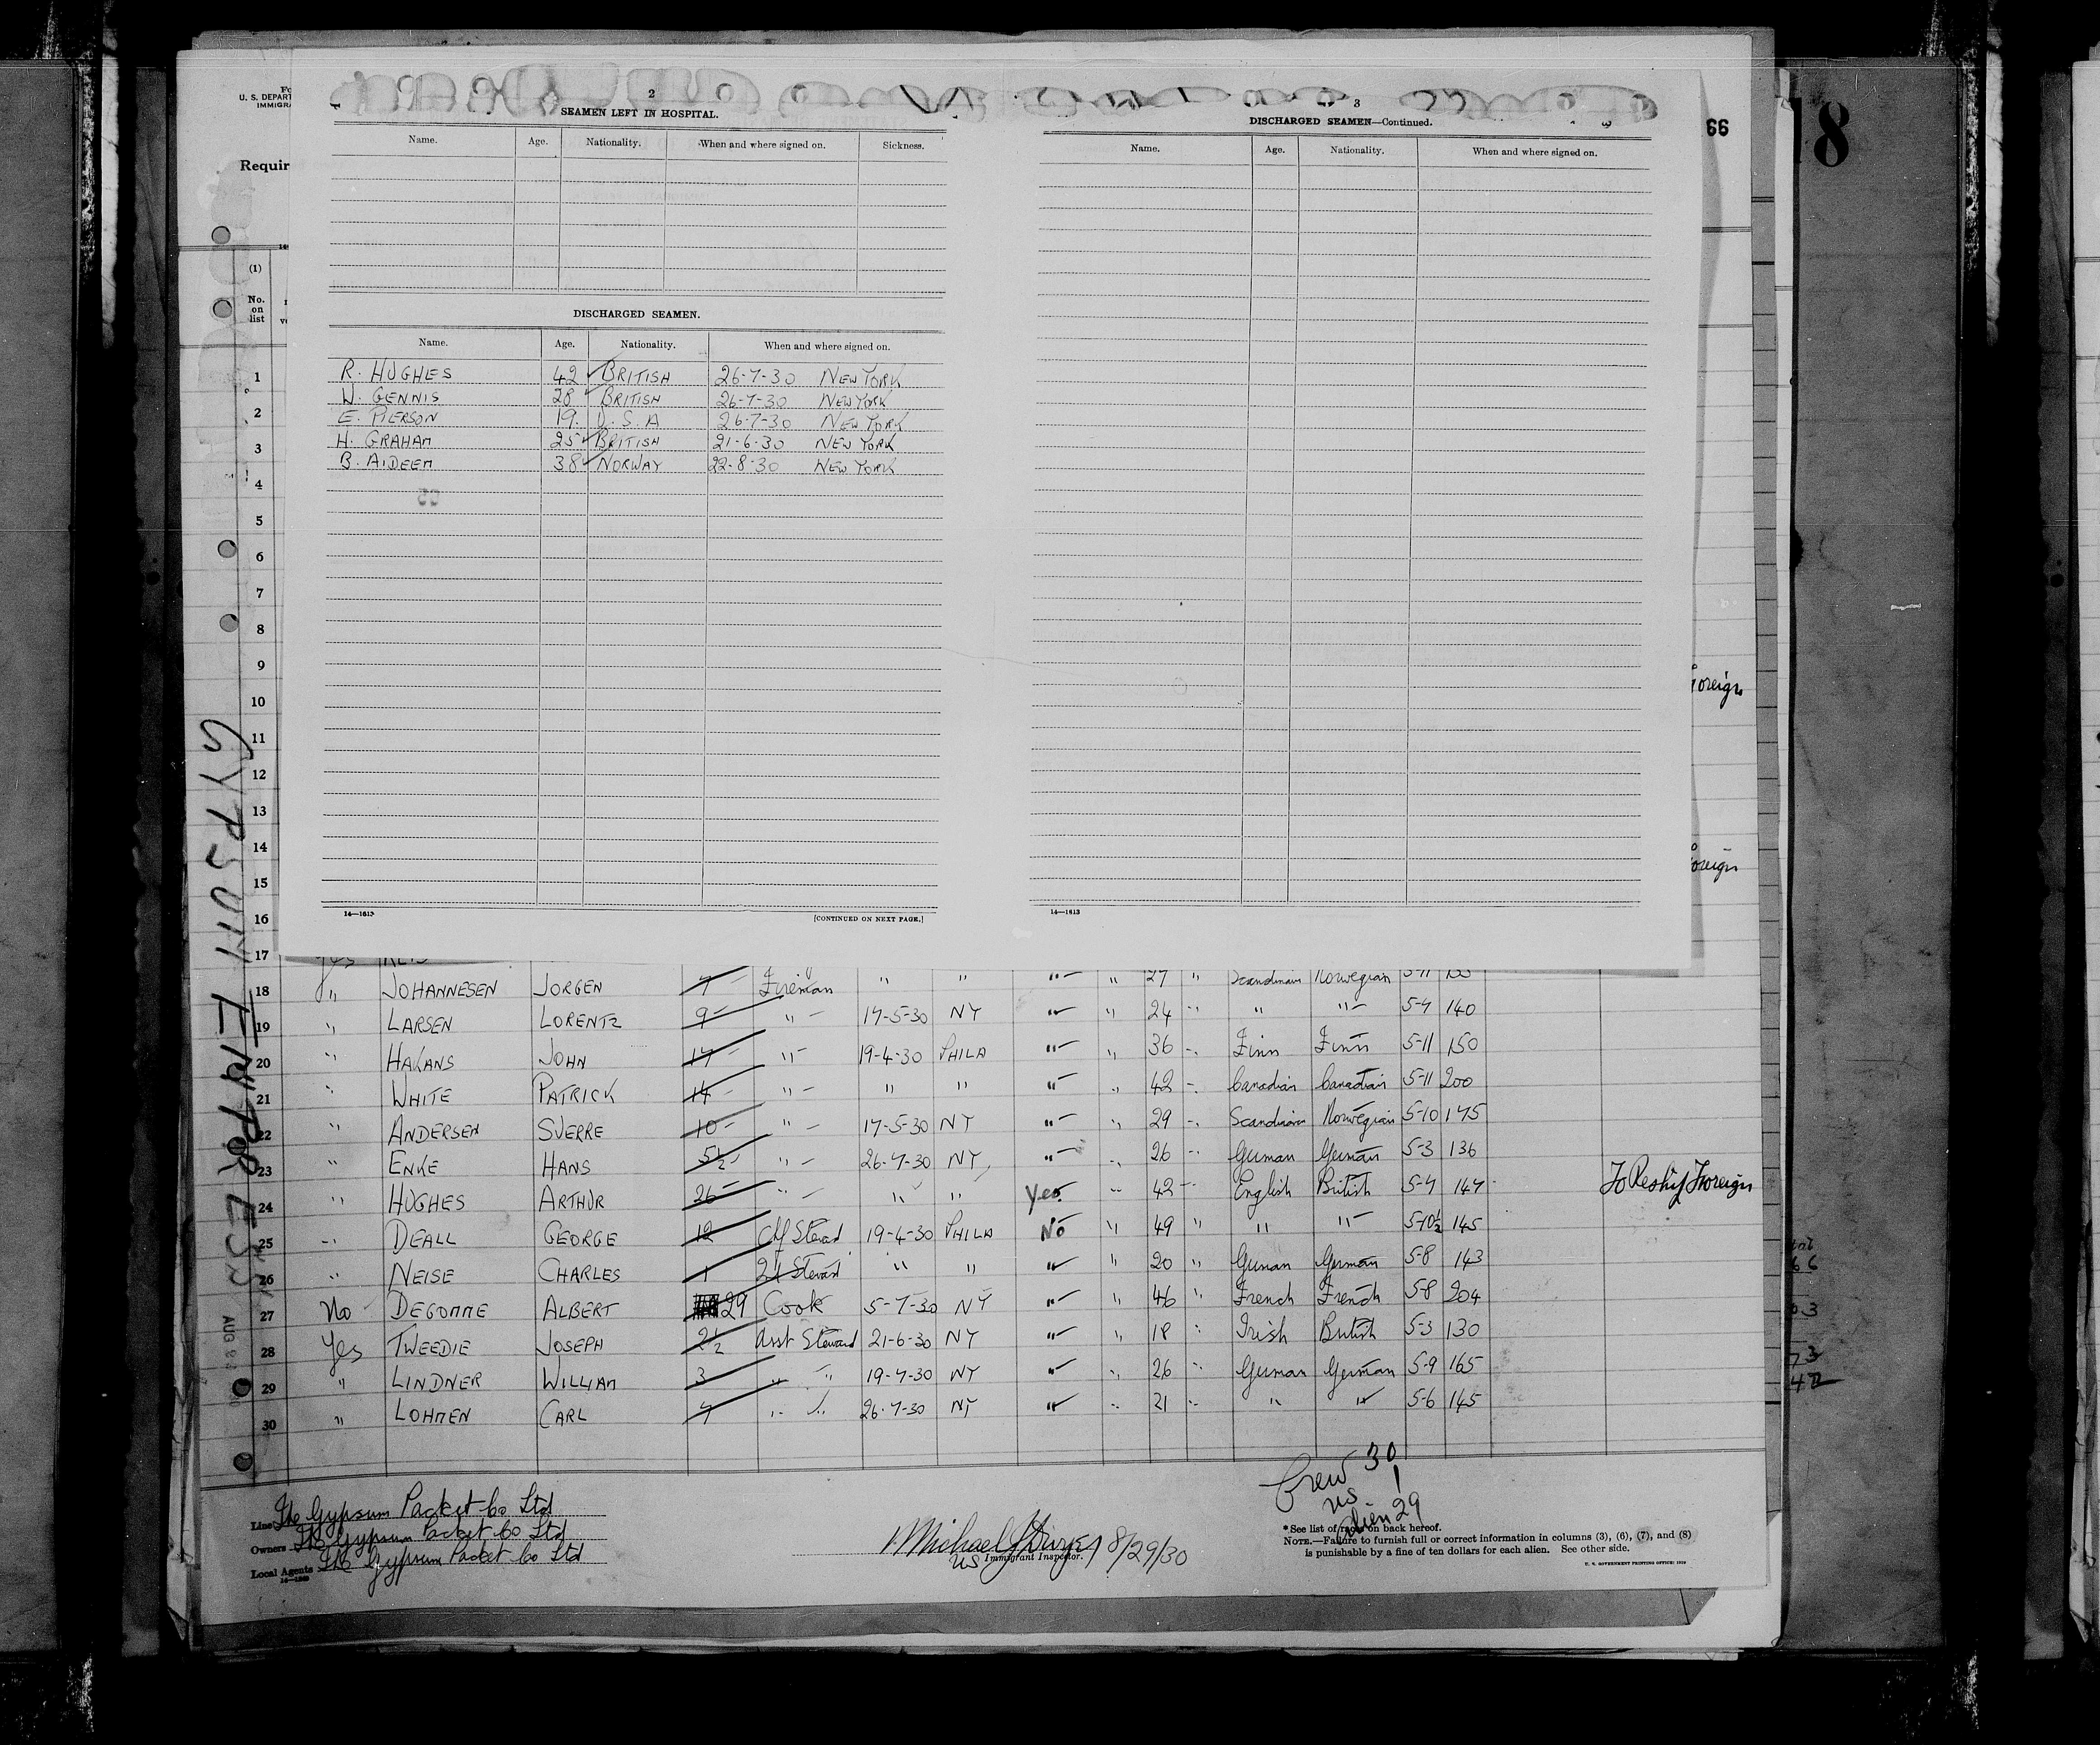 U. S. DEPART
IMMIGRA
Requir
66
18
2
SEAMEN LEFT IN HOSPITAL.
Name. Age. Nationality. When and where signed on. Sickness.
DISCHARGED SEAMEN.
Name. Age. Nationality. When and where signed on.
R. HUGHES 42 BRITISH 26-7-30 NEW YORK
W. GENNIS 28 BRITISH 26-7-30 NEW YORK
E. PIERSON 19. U.S.A 26-7-30 NEW YORK
H. GRAHAM 25 BRITISH 21-6-30 NEW YORK
B. AIDEEM 38 NORWAY 22-8-30 NEW YORK
14—1613
[CONTINUED ON NEXT PAGE.]
3
DISCHARGED SEAMEN—Continued.
Name. Age. Nationality. When and where signed on.
14—1613
(1)
No. on list
1
2
3
4
5
6
7
8
9
10
11
12
13
14
15
16
17
Foreign
Foreign
GYPSUM EMPRESS
18 " JOHANNESEN JORGEN 7 Fireman " " " " 27 " Scandinavian Norwegian 5-11
19 " LARSEN LORENTZ 9 " 17-5-30 NY " " 24 " " " 5-7 140
20 " HAKANS JOHN 17 " 19-4-30 PHILA " " 36 " Finn Finn 5-11 150
21 " WHITE PATRICK 14 " " " " " 42 " Canadian Canadian 5-11 200
22 " ANDERSEN SVERRE 10 " 17-5-30 NY " " 29 " Scandinavian Norwegian 5-10 175
23 " ENKE HANS 5½ " 26-7-30 NY " " 26 " German German 5-3 136
24 " HUGHES ARTHUR 26 " " " Yes " 42 " English British 5-7 147 To Reship Foreign
25 " DEALL GEORGE 12 Chf Steward 19-4-30 PHILA No " 49 " " " 5-10½ 145
26 " NEISE CHARLES 1 2d Steward " " " " 20 " German German 5-8 143
27 No DEGOMME ALBERT 29 Cook 5-7-30 NY " " 46 " French French 5-8 204
28 Yes TWEEDIE JOSEPH 2½ Asst Steward 21-6-30 NY " " 18 " Irish British 5-3 130
29 " LINDNER WILLIAM 3 " " 19-7-30 NY " " 26 " German German 5-9 165
30 " LOHMEN CARL 7 " " 26-7-30 NY " " 21 " " " 5-6 145
Crew 30
US 1
Alien 29
Line The Gypsum Packet Co Ltd
Owners The Gypsum Packet Co Ltd
Local Agents The Gypsum Packet Co Ltd
Michael 8/29/30
US Immigrant Inspector.
*See list of races on back hereof.
NOTE.—Failure to furnish full or correct information in columns (3), (6), (7), and (8)
is punishable by a fine of ten dollars for each alien. See other side.
U. S. GOVERNMENT PRINTING OFFICE